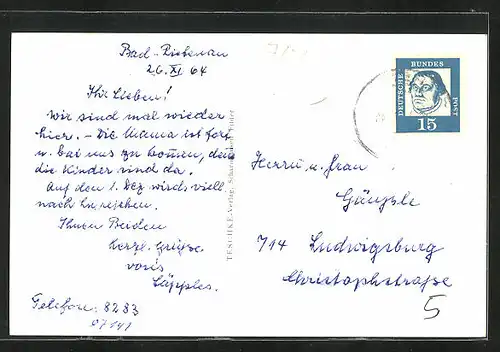 Bad-Liebenau
26. XI 64
Ihr Lieben!
Wir sind mal wieder
hier. - Die Mama ist fort
u. bei uns zu kommen, den
die Kinder sind da.
Auf den 1. Dez wirds viell
nach
Ihnen Beiden
herzl. Grüße
von's
Läpples.
Telefon: 8283
07141
TESCHKE-Verlag
DEUTSCHE BUNDES POST
15
Herrn u. Frau
Gänßle
714 Ludwigsburg
Christophstraße
5